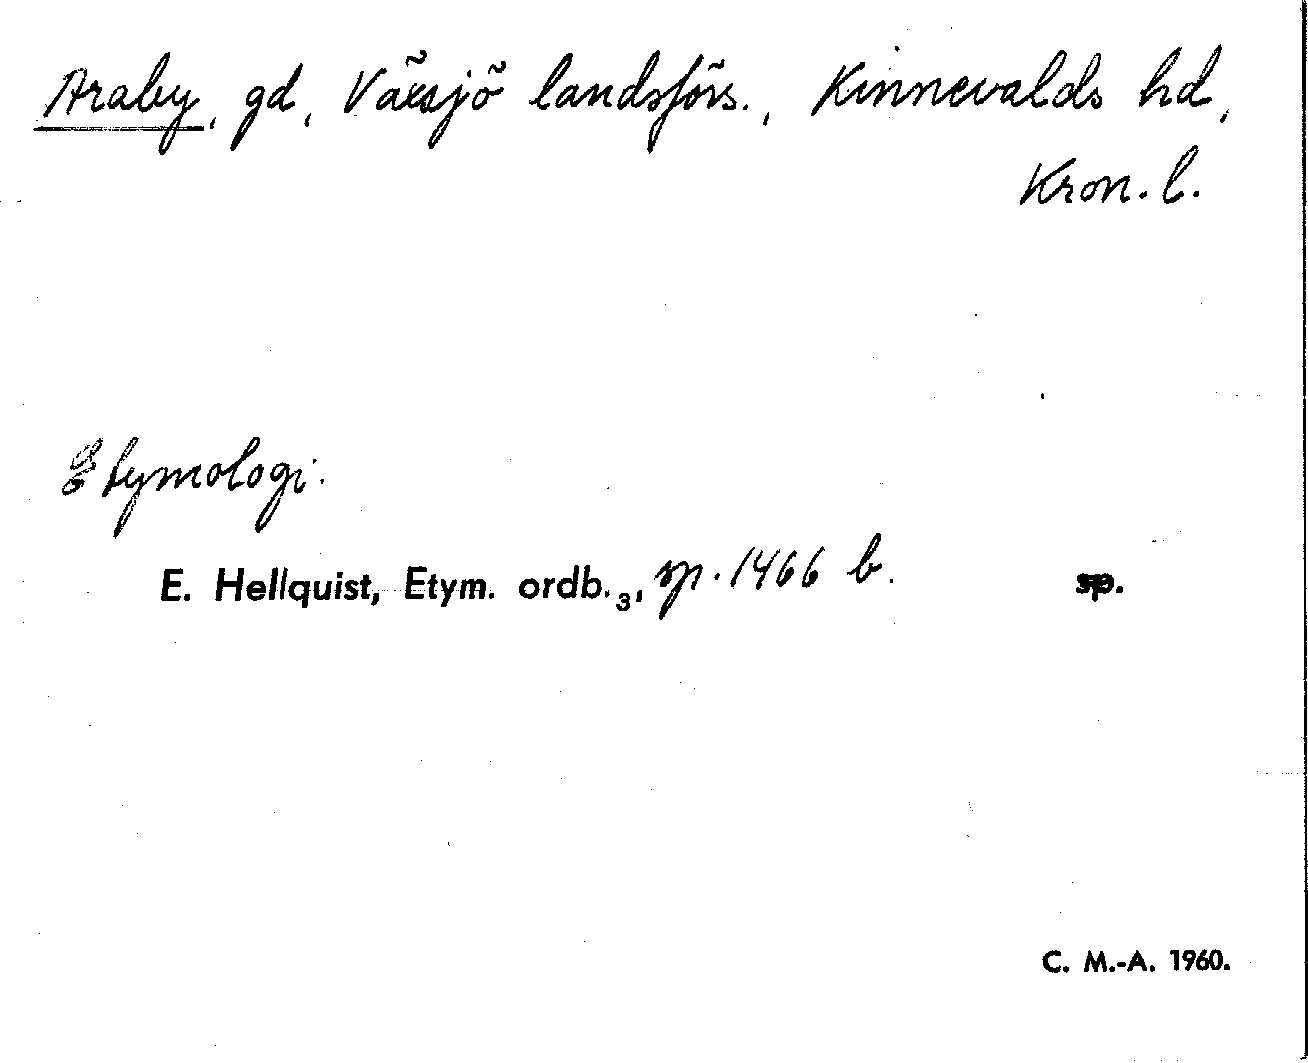 Araby, gd, Växsjö landsförs., Kinnevalds hd,
Kron. l.
Etymologi.
E. Hellquist, Etym. ordb.₃, sp. 1466 b. sp.
C. M.-A. 1960.